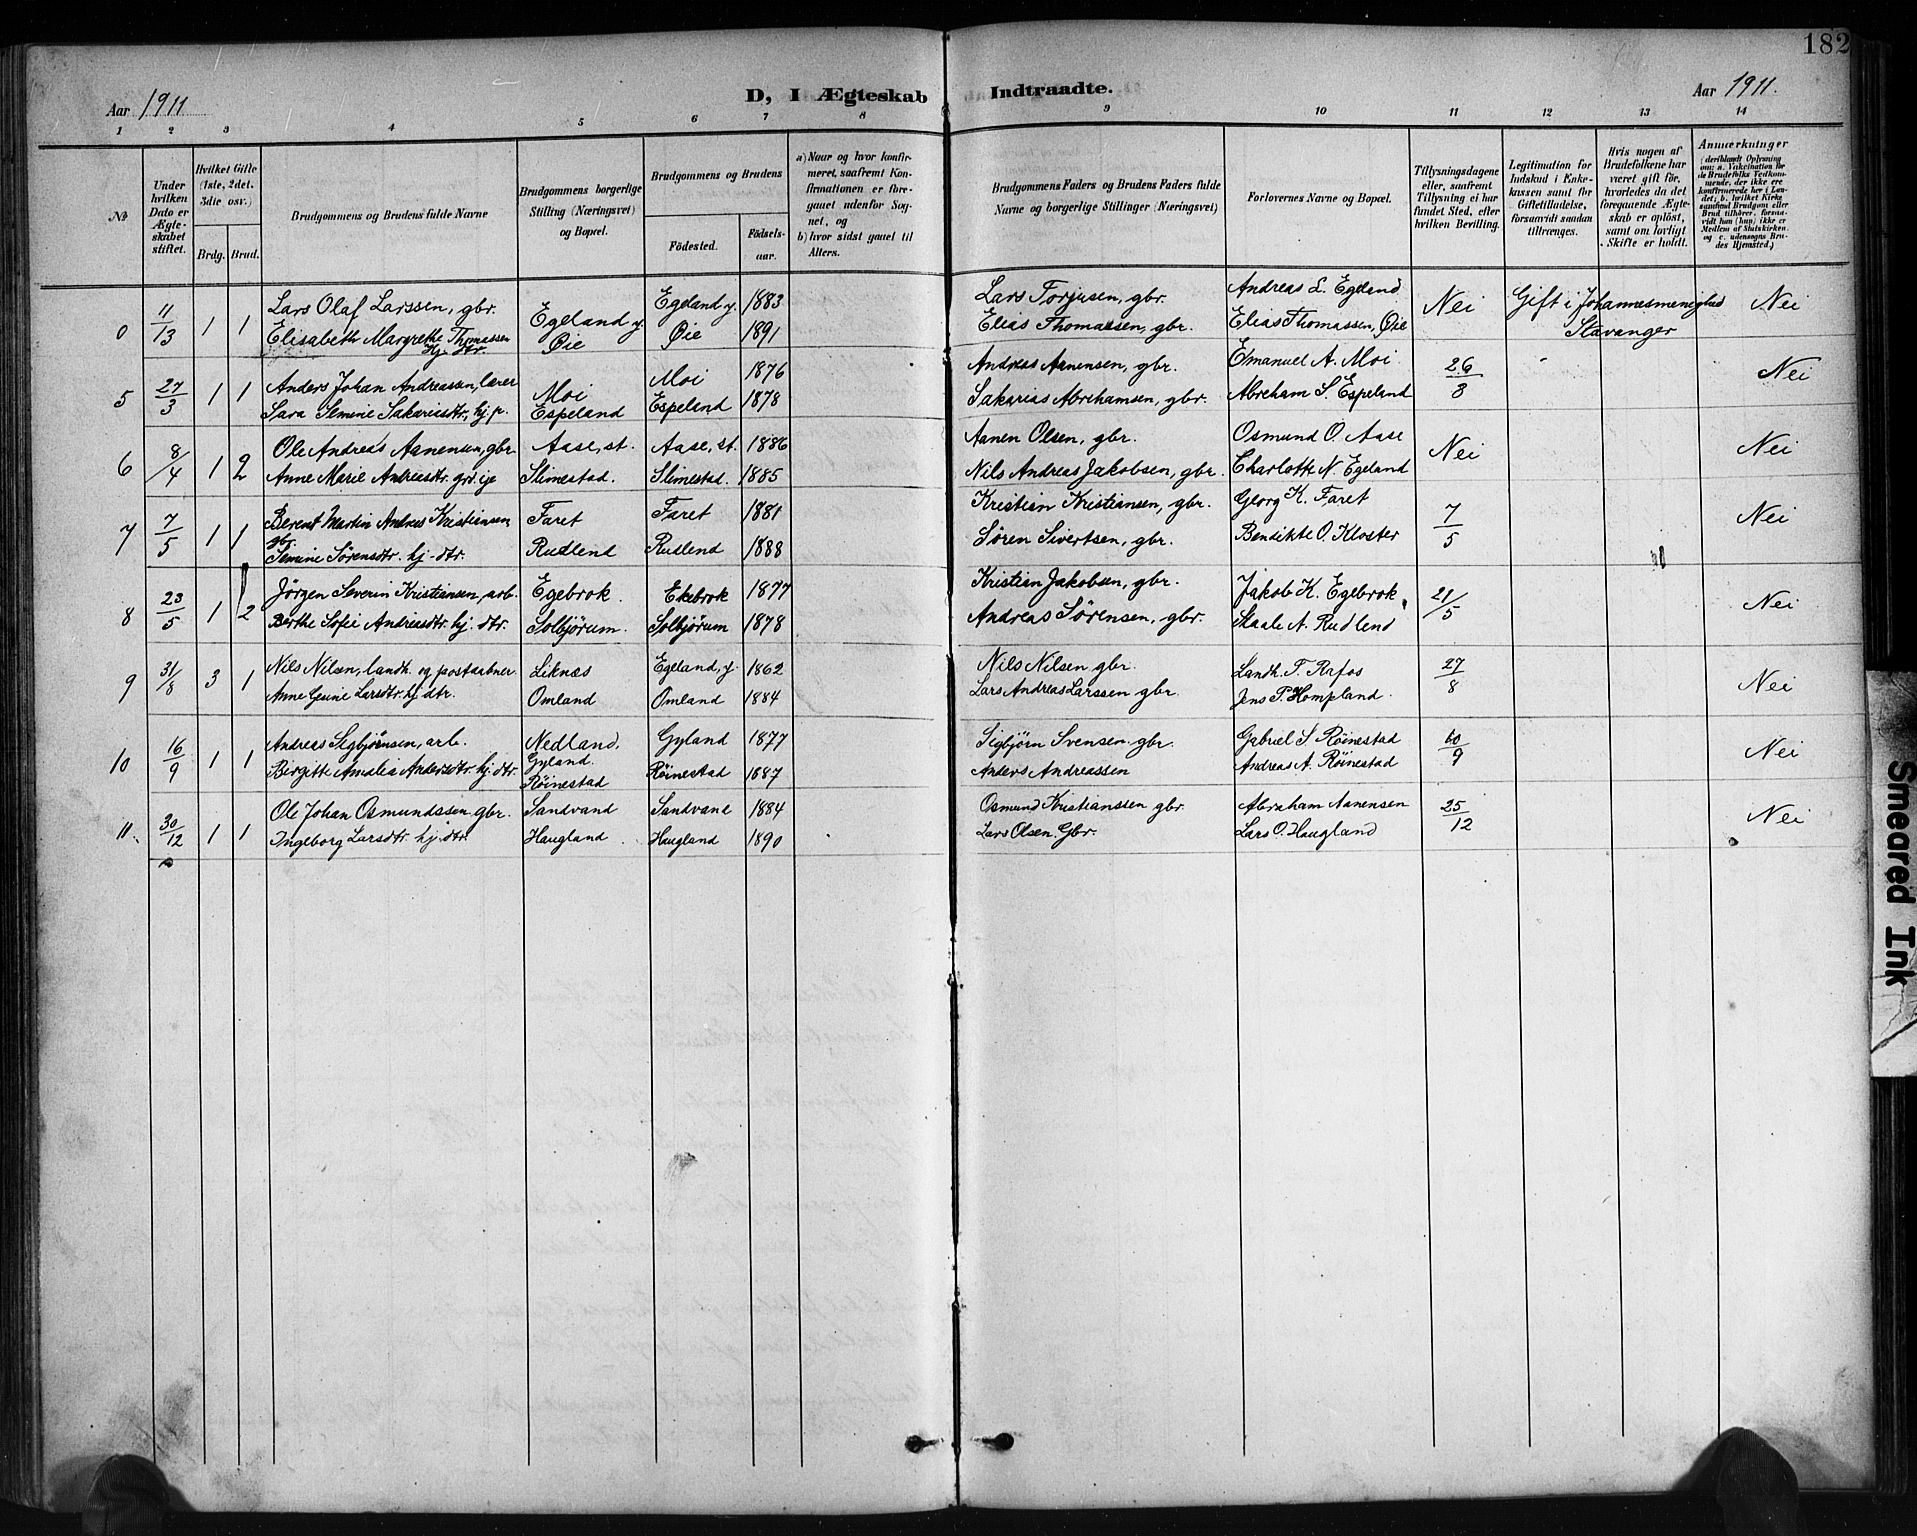 182
Aar 1911
D, I Ægteskab Indtraadte.
Aar 1911.
1 2 3 4 5 6 7 8 9 10 11 12 13 14
№
Under hvilken Dato er Ægteskabet stiftet.
Hvilket Gifte (1ste, 2det, 3die osv.)
Brdg. Brud.
Brudgommens og Brudens fulde Navne
Brudgommens borgerlige Stilling (Næringsvei) og Bopæl.
Brudgommens og Brudens
Födested.
Födselsaar.
a) Naar og hvor konfirmeret, saafremt Konfirmationen er foregaaet udenfor Sognet, og
b) hvor sidst gaaet til Alters.
Brudgommens Faders og Brudens Faders fulde Navne og borgerlige Stillinger (Næringsvei)
Forlovernes Navne og Bopæl.
Tillysningsdagene eller, saafremt Tillysning ei har fundet Sted, efter hvilken Bevilling.
Legitimation for Indskud i Enkekassen samt for Giftetilladelse, forsaavidt saadan tiltrænges.
Hvis nogen af Brudefolkene har været gift før, hvorledes da det foregaaende Ægteskab er oplöst, samt om lovligt Skifte er holdt.
Anmærkninger (deriblandt Oplysning om: a. Vakcination for de Brudefolks Vedkommende, der ikke ere konfirmerede her i Landet; b. hvilket Kirkesamfund Brudgom eller Brud tilhörer, forsaavidt han (hun) ikke er Medlem af Statskirken, og c. udensogns Brudes Hjemsted.)
0 11/13 1 1 Lars Olaf Larssen, gbr. Egeland y. Egeland y. 1883 Lars Torjusen, gbr. Andreas L. Egeland Nei Gift i Johannesmenighed Nei
Elisabeth Margrethe Thomassen hj. dtr. Øie Øie 1891 Elias Thomassen, gbr. Elias Thomassen, Øie Stavanger
5 27/3 1 1 Anders Johan Andreassen, lærer Moi Moi 1876 Andreas Aanensen, gbr. Emanuel A. Moi 26/3 Nei
Sara Semine Sakariasdtr, hj. p. Espeland Espeland 1878 Sakarias Abrahamsen, gbr. Abraham S. Espeland
6 8/4 1 2 Ole Andreas Aanensen, gbr Aase, st. Aase, st. 1886 Aanen Olsen, gbr. Osmund O. Aase Nei Nei
Anne Marie Andreasdtr. grd. eje Slimestad. Slimestad. 1885 Nils Andreas Jakobsen, gbr. Charlotte N. Egeland
7 7/5 1 1 Berent Martin Andreas Kristiansen gbr Faret Faret 1881 Kristian Kristiansen, gbr. Georg K. Faret 7/5 Nei
Semine Sørensdtr. hj. dtr. Rudlend Rudlend 1888 Søren Sivertsen, gbr. Bendikte O. Kloster
8 23/5 1 2 Jørgen Severin Kristiansen, arb. Egebrok. Ekebrok 1877 Kristian Jakobsen, gbr. Jakob K. Egebrok 21/5 Nei
Berthe Sofie Andreasdtr. hj. dtr. Solbjørum. Solbjørum 1878 Andreas Sørensen, gbr. Staale A. Rudlend
9 31/8 3 1 Nils Nilsen, landh. og postaabner Liknæs Egeland, y. 1862 Nils Nilsen gbr. Landh. T. Rafos 27/8 Nei
Anne Gurine Larsdtr. hj. dtr. Omland Omland 1884 Lars Andreas Larssen gbr. Jens P. Hompland.
10 16/9 1 1 Andreas Sigbjørnsen, arb. Nedland, Gyland. Gyland 1877 Sigbjørn Svensen. gbr. Gabriel S. Röinestad 10/9 Nei
Birgitte Amalia Andersdtr. hj. dtr. Röinestad Röinestad 1887 Anders Andreassen Andreas A. Röinestad
11. 30/12 1 1 Ole Johan Osmundssen, gbr. Sandvand Sandvand 1884 Osmund Kristianssen gbr. Abraham Aanensen 25/12 Nei
Ingeborg Larsdtr. hj. dtr. Haugland Haugland 1890 Lars Olsen. Gbr. Lars O. Haugland
Smeared Ink